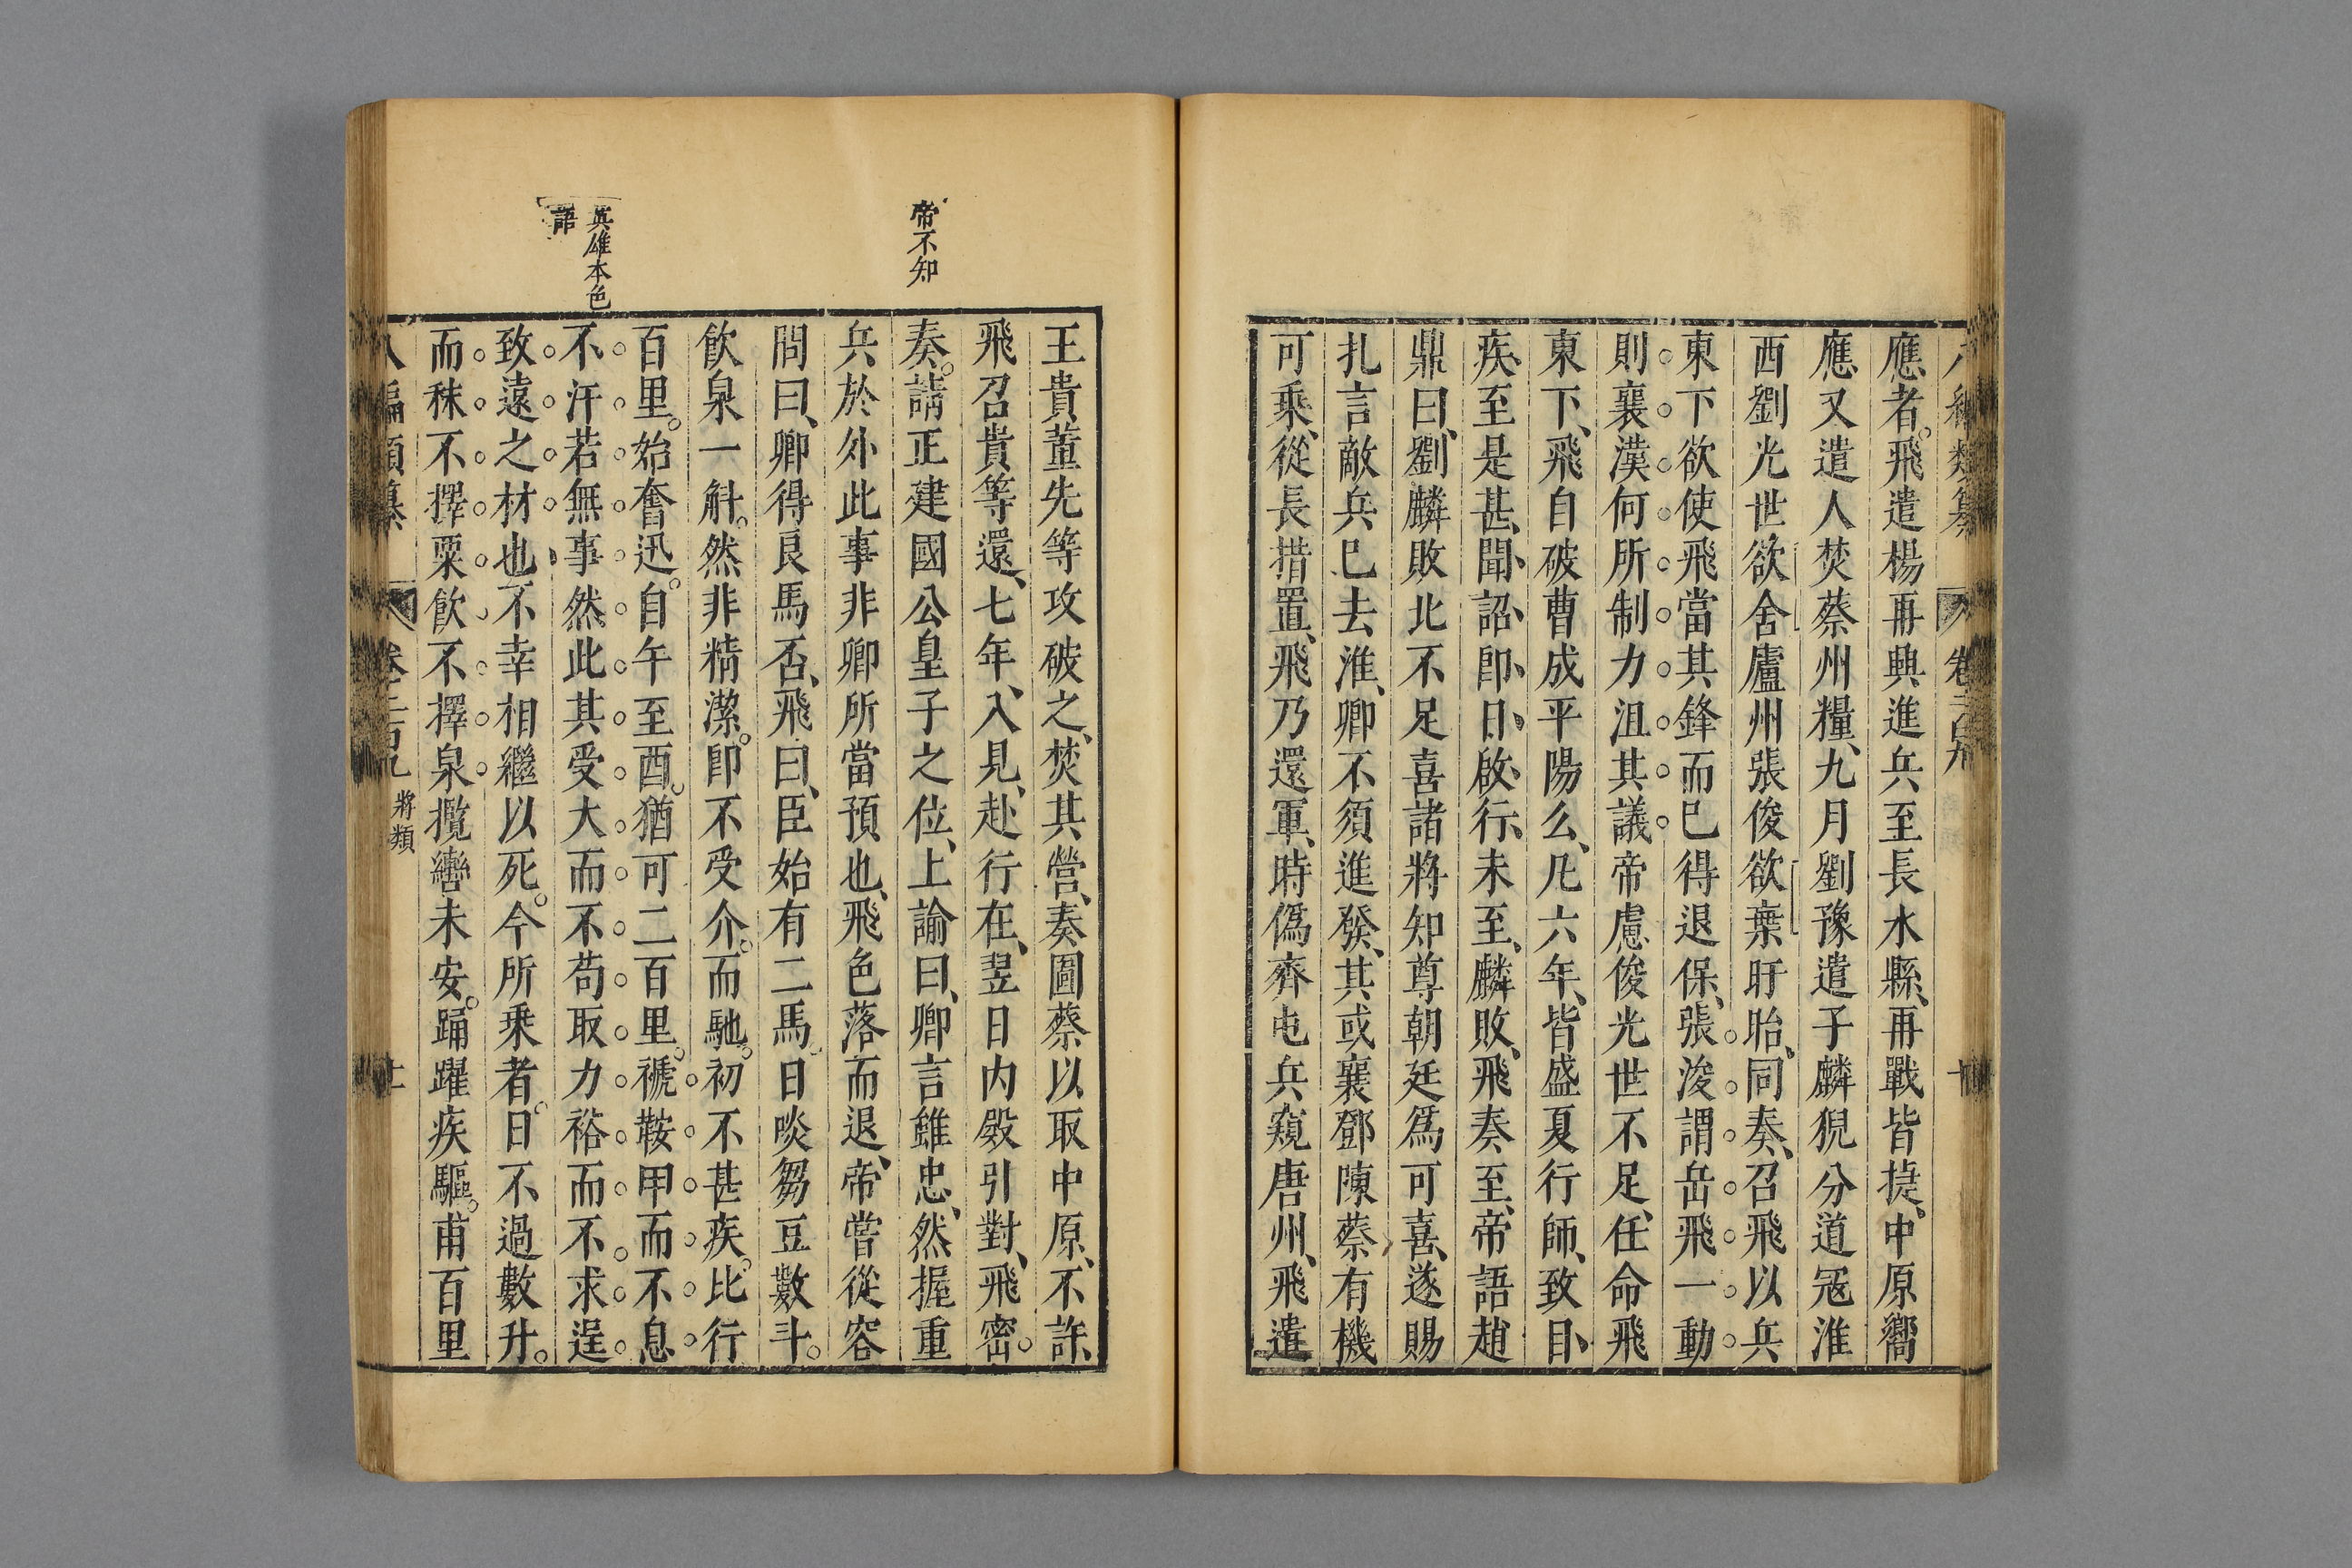 應者飛遣楊再興進兵至長水縣再戰皆㨗中原嚮
應又遣人焚蔡州糧九月劉豫遣子麟猊分道冦淮
西劉光世欲舍廬州張俊欲棄盱眙同奏召飛以兵
東下欲使飛當其鋒而巳得退保張浚謂岳飛一動
則襄漢何所制力沮其議帝慮俊光世不足任命飛
東下飛自破曹成平陽么凡六年皆盛夏行師致目
疾至是甚聞詔即日啟行未至麟敗飛奏至帝語趙
鼎曰劉麟敗北不足喜諸將知尊朝廷爲可喜遂賜
扎言敵兵巳去淮卿不須進發其或襄鄧陳蔡有機
可乘從長措置飛乃還軍時僞齊屯兵窺唐州飛遣
帝不知
英雄本色
語
王貴董先等攻破之焚其營奏圖蔡以取中原不許
飛召貴等還七年入見赴行在翌日內殿引對飛密
奏請正建國公皇子之位上諭曰卿言雖忠然握重
兵於外此事非卿所當預也飛色落而退帝嘗從容
問曰卿得良馬否飛曰臣始有二馬日啖芻豆數斗
飲泉一斛然非精潔即不受介而馳初不甚疾比行
百里始奮迅自午至酉猶可二百里褫鞍甲而不息
不汗若無事然此其受大而不苟取力裕而不求逞
致遠之材也不幸相繼以死今所乘者日不過數升
而秣不擇粟飲不擇泉攬轡未安踊躍疾驅甫百里
將類